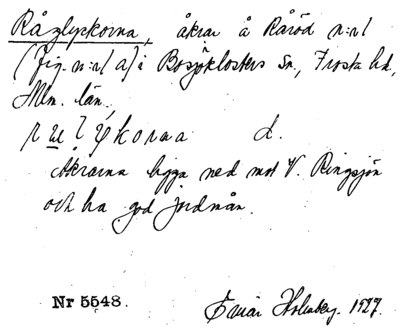 Råglyckorna, åkrar å Råröd n:r 1
(fig. n:r 1 a) i Bosjöklosters sn, Frosta hd,
Mlm. län.
d.
Åkrarna ligga ned mot V. Ringsjön
och ha god jordmån.
Nr 5548. Einar Holmberg. 1927.